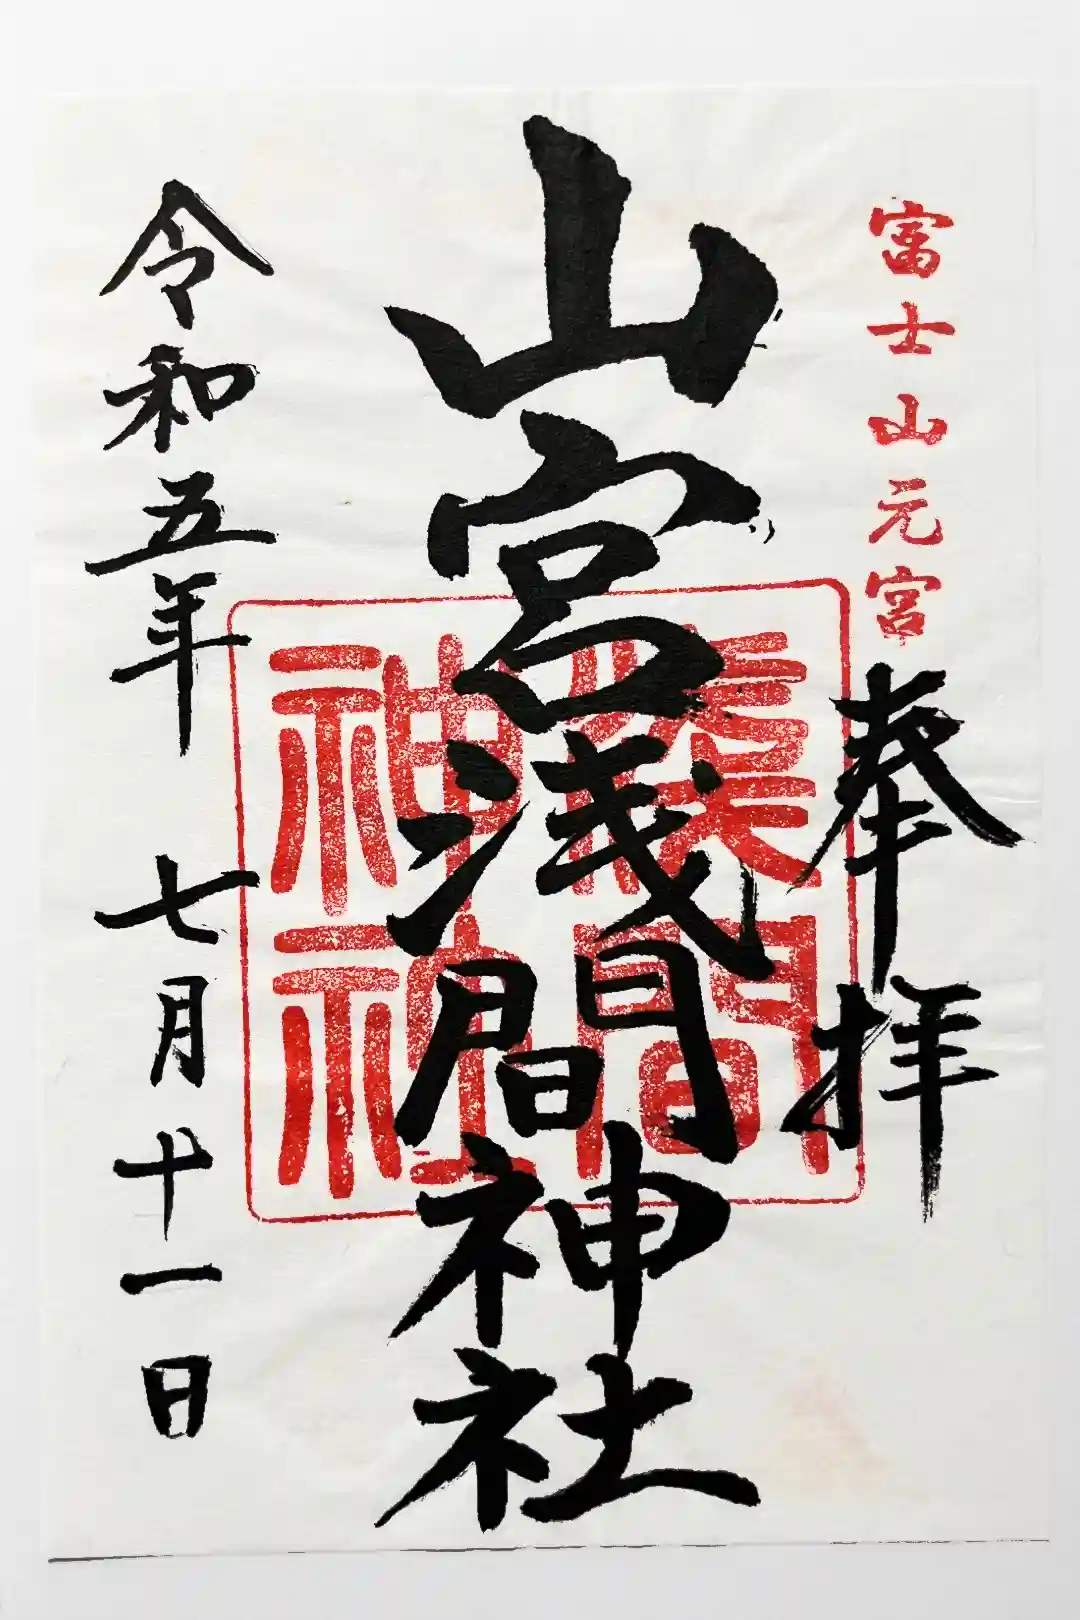 富士山元宮
奉拝
山宮浅間神社
浅間
神社
令和五年 七月十一日